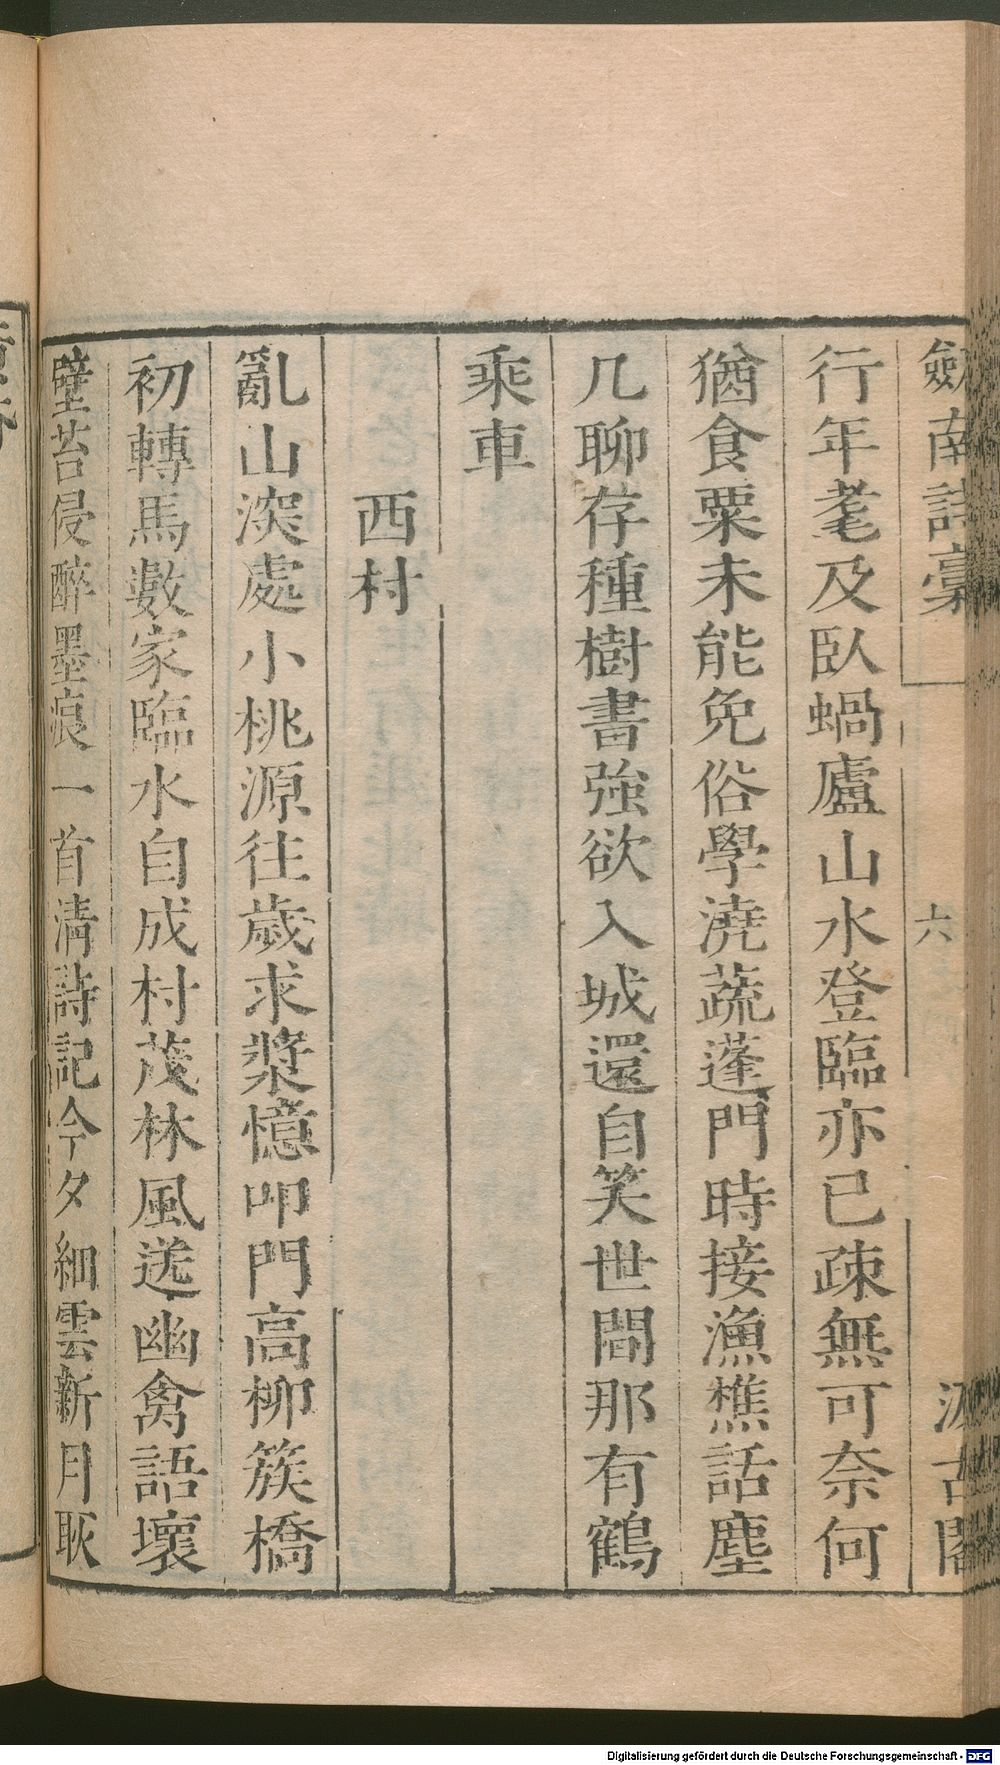 劒南詩藁 六 汲古閣
行年耄及臥蝸廬山水登臨亦已疎無可奈何
猶食粟未能免俗學澆蔬蓬門時接漁樵話塵
几聊存種樹書強欲入城還自笑世間那有鶴
乘車
西村
亂山深處小桃源往歲求漿憶叩門高柳簇橋
初轉馬數家臨水自成村茂林風送幽禽語壞
壁苔侵醉墨痕一首清詩記今夕細雲新月耿
Digitalisierung gefördert durch die Deutsche Forschungsgemeinschaft - DFG